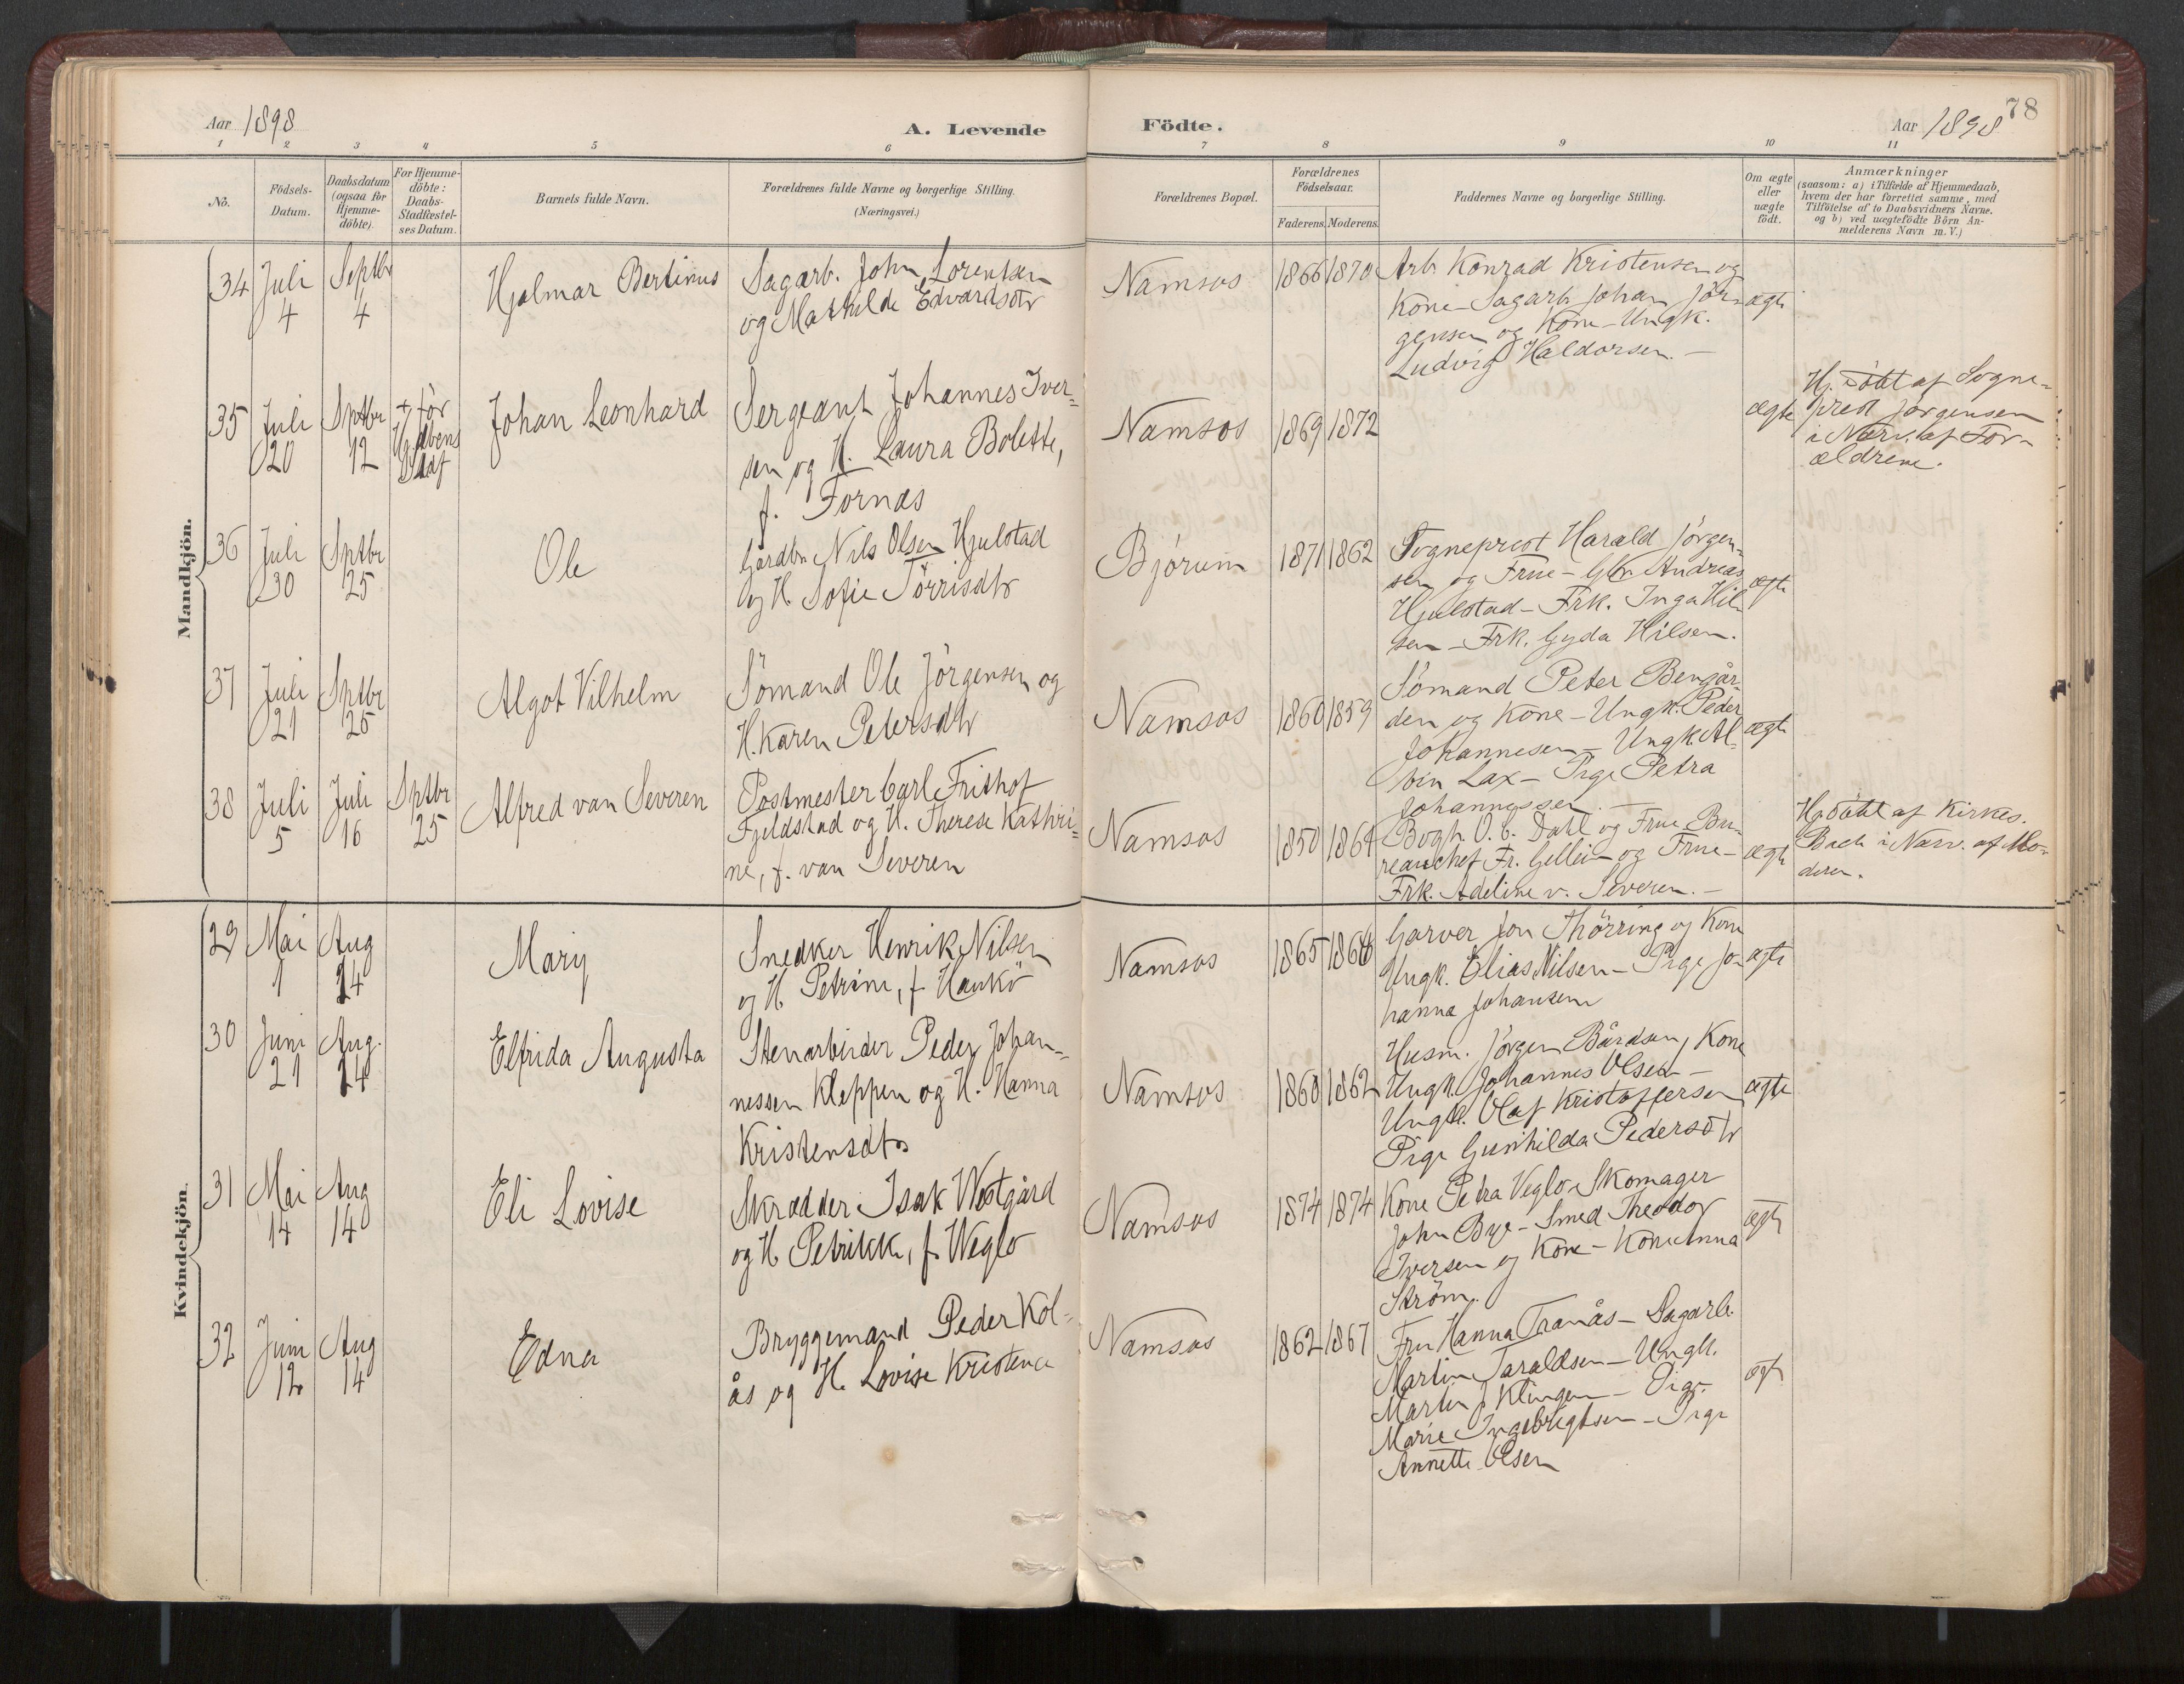 78
Aar 1898
A. Levende
Födte.
Aar 1898
1 2 3 4 5 6 7 8 9 10 11
No.
Födsels-
Datum.
Daabsdatum
(ogsaa for
Hjemme-
döbte).
For Hjemme-
döbte:
Daabs-
Stadfæstel-
ses Datum.
Barnets fulde Navn.
Forældrenes fulde Navne og borgerlige Stilling.
(Næringsvei.)
Forældrenes Bopæl.
Forældrenes
Födselsaar.
Faderens. Moderens.
Faddernes Navne og borgerlige Stilling.
Om ægte
eller
uægte
födt.
Anmærkninger
(saasom: a) i Tilfælde af Hjemmedaab,
hvem der har forrettet samme, med
Tilföielse af to Daabsvidners Navne.
og b) ved uægtefödte Börn An-
melderens Navn m. V.)
Mandkjön.
34
Juli
4
Septbr
4
Hjalmar Bertinus
Sagarb. John Lorentsen
og Mathilde Edvardsdtr
Namsos
1866 1870
Arb. Konrad Kristensen og
Kone - Sagarb. Johan Jör-
gensen og Kone - Ungk.
Ludvig Haldorsen. -
ægte
35
Juli
20
Sptbr
12
+ för
Johan Leonhard
Sergeant Johannes Iver-
sen og H. Laura Bolette,
f. Fornæs
Namsos
1869 1872
ægte
Hj. döbt af Sogne-
prest Jörgensen
i Nærv. af For-
ældrene.
36
Juli
30
Sptbr
25
Ole
Gårdbr Nils Olsen Hjulstad
og H. Sofie Törrisdtr
Bjórum
1871 1862
Sogneprest Harald Jörgen-
sen og Frue - Gbr. Andreas
Hjulstad - Frk. Inga Hil-
sen - Frk. Gyda Hilsen.
ægte
37
Juli
21
Sptbr
25
Algot Vilhelm
Sömand Ole Jörgensen og
H. Karen Petersdtr
Namsos
1860 1859
Sömand Peter Bengår-
den og Kone - Ungk. Peder
Johannesen - Ungk. Al-
bin Lax - Pige Petra
Johannessen. -
ægte
38
Juli
5
Juli
16
Sptbr
25
Alfred van Severen
Postmester Carl Frithof
Fjeldstad og H. Therese Kathri-
ne, f. van Severen
Namsos
1850 1864
Bogh. O. C. Dahl og Frue - Bu-
reauchef Fr. Gellein og Frue -
Frk. Adeline v. Severen. -
ægte
Hj. döbt af Kirkes.
Bach i Nærv. af Mo-
deren.
Kvindekjön.
29
Mai
1
Aug
14
Mary
Snedker Henrik Nilsen
og H. Petrine, f. Haukö
Namsos
1865 1868
Garver Jon Thörring og Kone
Ungk. Elias Nilsen - Pige Jo-
hanna Johansen
ægte
30
Juni
21
Aug.
14
Elfrida Augusta
Stenarbeider Peder Johan-
nessen Kleppen og H. Hanna
Kristensdtr
Namsos
1860 1862
Husm. Jörgen Bårdsen, Kone
Ungk. Johannes Olsen -
Ungk. Olaf Kristoffersen
Pige Gunhilda Pedersdtr
ægte
31
Mai
14
Aug
14
Eli Lovise
Skrædder Isak Westgård
og H. Petrikke, f. Weglo
Namsos
1874 1874
Kone Petra Veglo - Skomager
John Bye - Smed Theodor
Iversen og Kone - Kone Anna
Ström.
ægte
32
Juni
12
Aug
14
Edna
Bryggemand Peder Kol-
ås og H. Lovise Kristence
Namsos
1862 1867
Fru Hanna Tranås - Sagarb.
Martin Taraldsen - Ungk.
Martin J. Klingen - Pige
Marie Ingebrigtsen - Pige
Annette Olsen
ægte